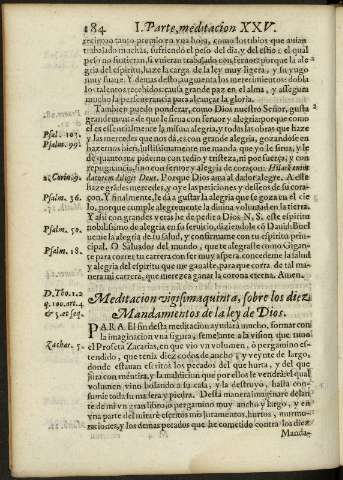 184 I. Parte, meditacion XXV.
trabajado muchas, sufriendo el peso del dia, y del estio: el qual
peso no sintieran, si vuieran trabajado con feruor: porque la ale
gria del espiritu, haze la carga de la ley muy ligera, y su yugo
muy suaue. Y demas desto, augmenta los merecimientos: dobla
los talentos recebidos: causa grande paz en el alma, y assegura
mucho la perseuerancia para alcançar la gloria.
Tambien puedo ponderar, como Dios nuestro Señor, gusta
grandemente de que le sirua con feruor y alegria: porque como
el es essencialmente la misma alegria, y todas las obras que haze
Psal. 103. y las mercedes que nos dà, es con grande alegria, gozandose en
Psalm. 99. hazernos bien, justissimamente me manda que yo le sirua, y le
dè quanto me pidiere con tedio y tristeza, ni por fuerça, y con
repugnancia, sino con feruor y alegria de coraçon: Hilarem enim
2. Corin. 9. datorem diligit Deus. Porque Dios ama al dador alegre. A este
haze grandes mercedes, y oye las peticiones y desseos de su cora-
Psalm. 36. çon. Y finalmente, le dà a gustar la alegria que se goza en el cie
lo, porque cumple alegremente la diuina voluntad en la tierra.
Y assi con grandes veras he de pedir a Dios N. S. este espiritu
Psalm. 50. nobilissimo de alegria en su seruicio, diziendole cõ Dauid: Buel
ueme la alegria de tu Salud, y confirmame con tu espiritu prin-
Psalm. 18. cipal. O Saluador del mundo, que te alegraste como Gigan-
te para correr tu carrera con ser muy aspera, concedeme la salud
y alegria del espiritu que me gañaste, para que corra de tal ma-
nera mi carrera, que merezca ganar la corona eterna. Amen.
D. Tho. 1. 2
q. 100. art. 4
& 3. ac seq.
Meditacion vigesimaquinta, sobre los diez
Mandamientos de la ley de Dios.
PARA El fin desta meditacion ayudarà mucho, formar con
la imaginacion vna figura, semejante a la vision que tuuo
Zachar. 5. el Profeta Zacarias, en que vio vn volumen, ò pergamino es-
tendido, que tenia diez codos de ancho, y veynte de largo,
donde estauan escritos los pecados del que hurta, y del que
jura con mẽtira, y la maldicion que por ellos le vendrà: el qual
volumen vino bolando a su casa, y la destruyo, hasta con-
sumir toda su madera y piedra. Desta manera imaginarè delan
te de mi vn gran libro, ò pergamino muy ancho y largo, y en
vna parte del mirarè escritos mis juramentos, hurtos, murmu-
raciones, y los demas pecados que he cometido contra los diez
Manda-